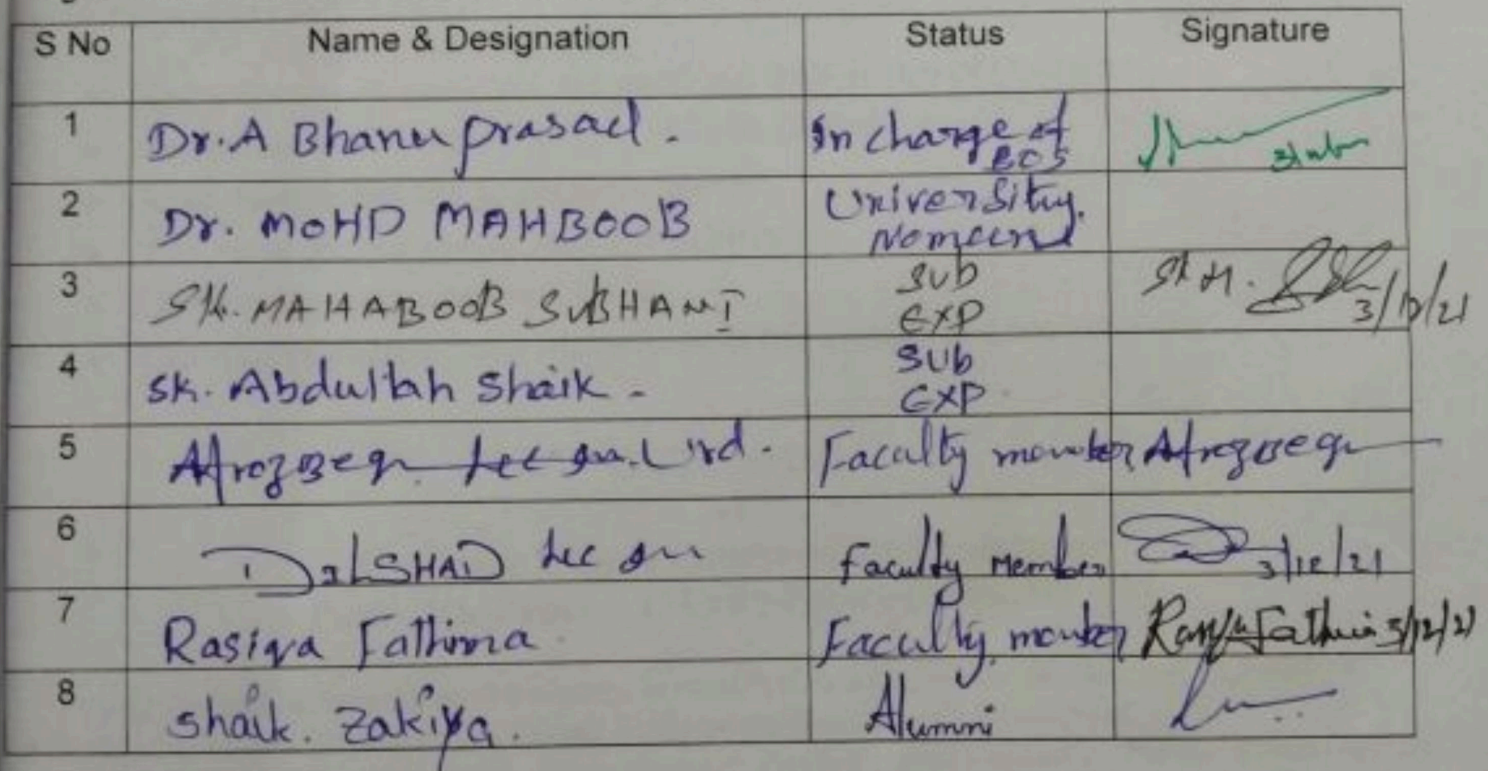 S No Name & Designation Status Signature
1 Dr. A Bhanu prasad. In charge of
BOS
2 Dr. MOHD MAHBOOB University.
3 SK. MAHABOOB SUBHANI Sub
EXP
SK M. 3/12/21
4 SK. Abdullah Shaik - SUb
EXP
5 Afrozbegu Lec in Urd. Faculty member Afrozbegu
6 DILSHAD Lec in Faculty Member 3/12/21
7 Rasiya Fathima Faculty member Fathima 3/12/21
8 Shaik. Zakiya. Alumni